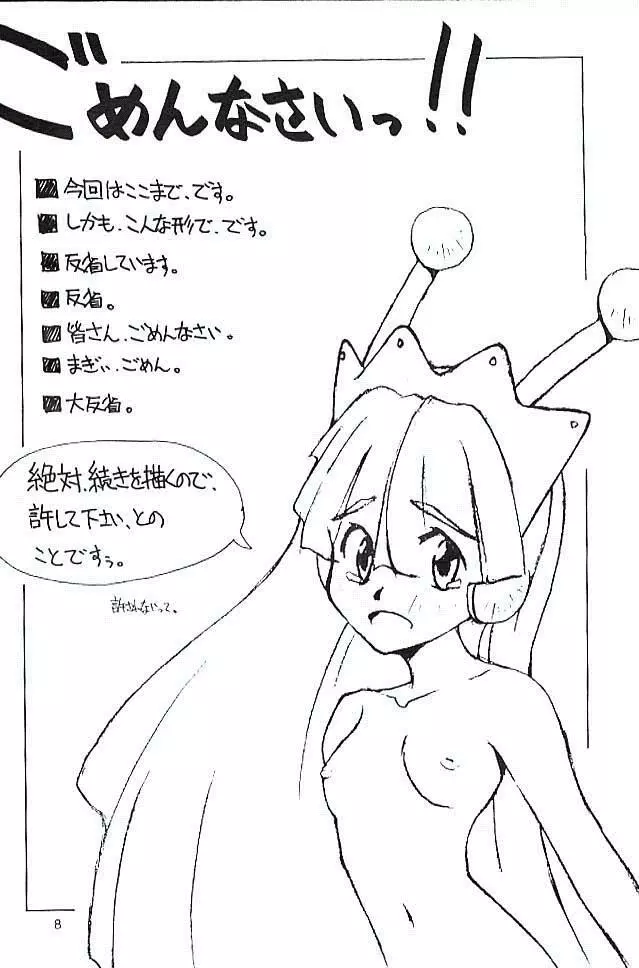 ごめんなさいっ!!
今回はここまで、です。
しかも、こんな形で、です。
反省しています。
反省。
皆さん、ごめんなさい。
まぎぃ、ごめん。
大反省。
絶対、続きを描くので、
許して下さい、との
ことですぅ。
許されないって。
8